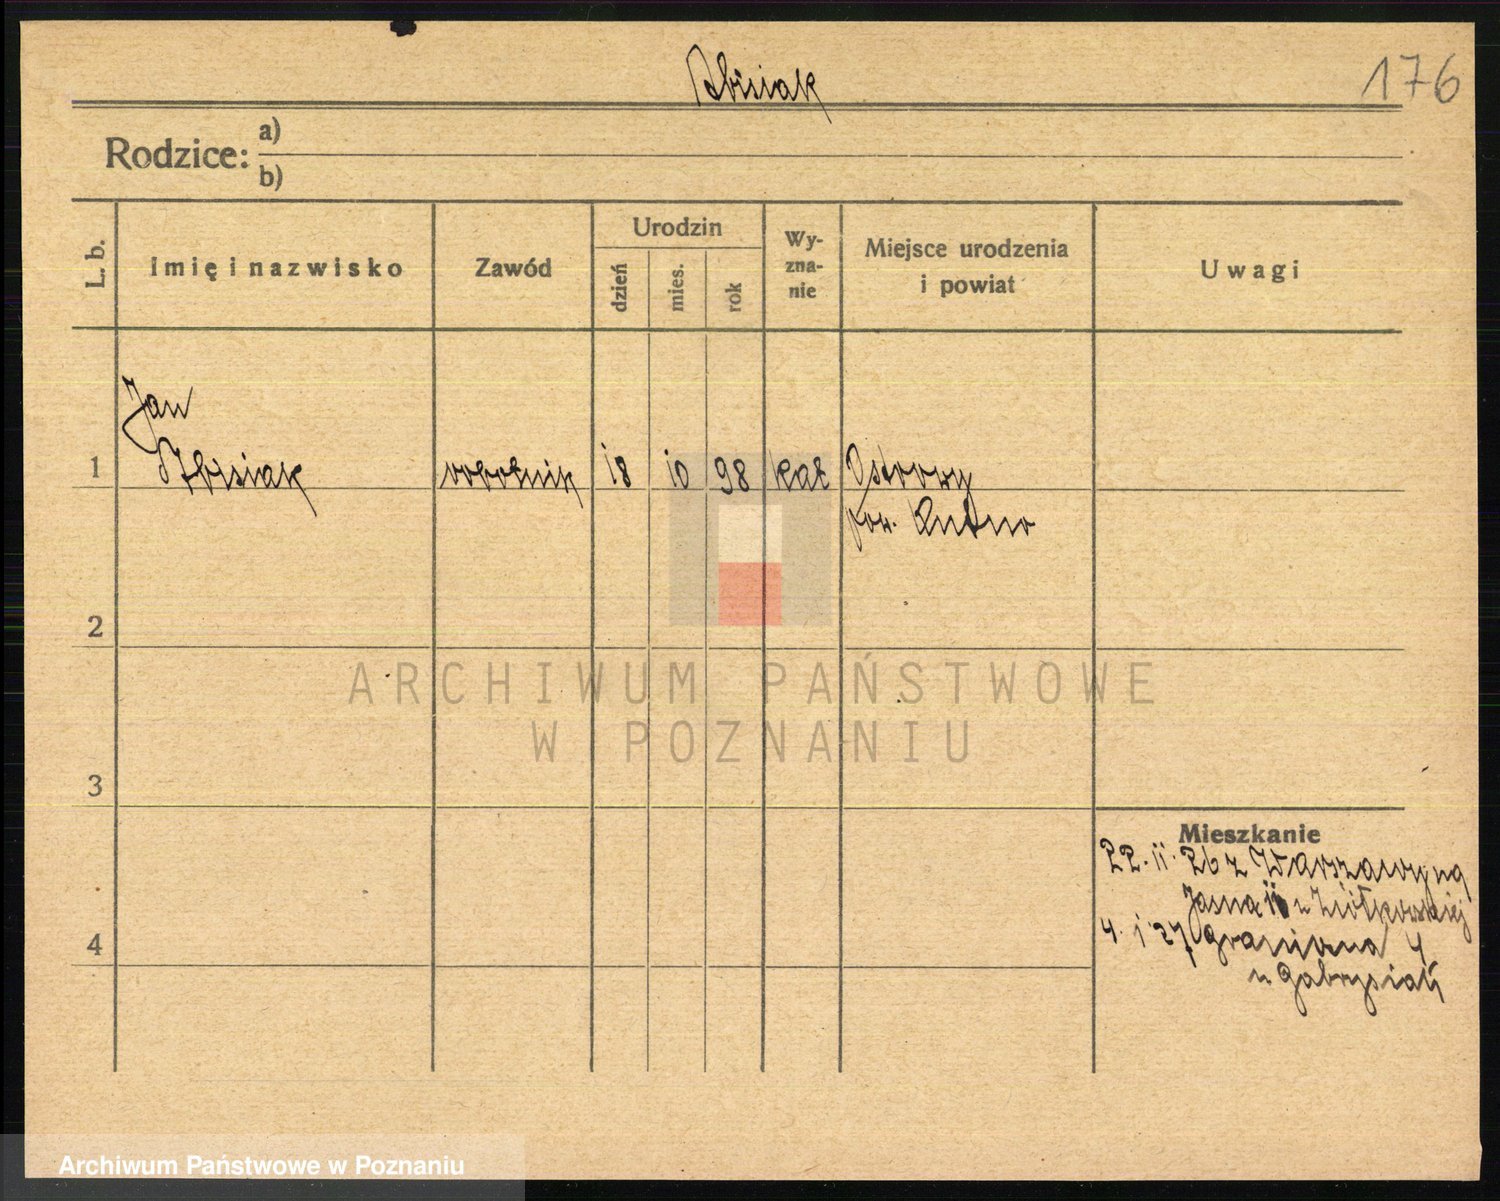 Zbisiak
176
Rodzice: a)
b)
L. b.
Imię i nazwisko
Zawód
Urodzin
dzień
mies.
rok
Wy-
zna-
nie
Miejsce urodzenia
i powiat
Uwagi
Jan
1 Zbisiak robotnik 18 10 98 kat Ostrowy
pow. Kutno
2
3
4
Mieszkanie
22. 11. 26 z Warszawy na
Jasna 11 u Ziółkowskiej
4. 1 27 Graniczna 4
u Gabrysiak
ARCHIWUM PAŃSTWOWE
W POZNANIU
Archiwum Państwowe w Poznaniu